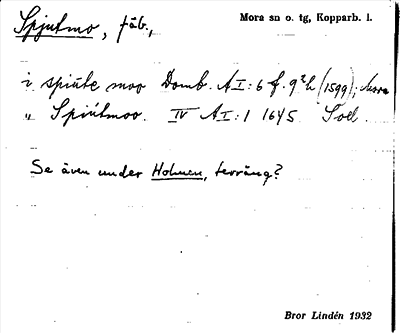 Spjutmo, fäb., Mora sn o. tg, Kopparb. l.
i spiúte moo Domb. AI:6 f. 9 h (1599); Mora
" Spiútmoo. IV AI:1 1645
Se även under Holmen, terräng?
Bror Lindén 1932